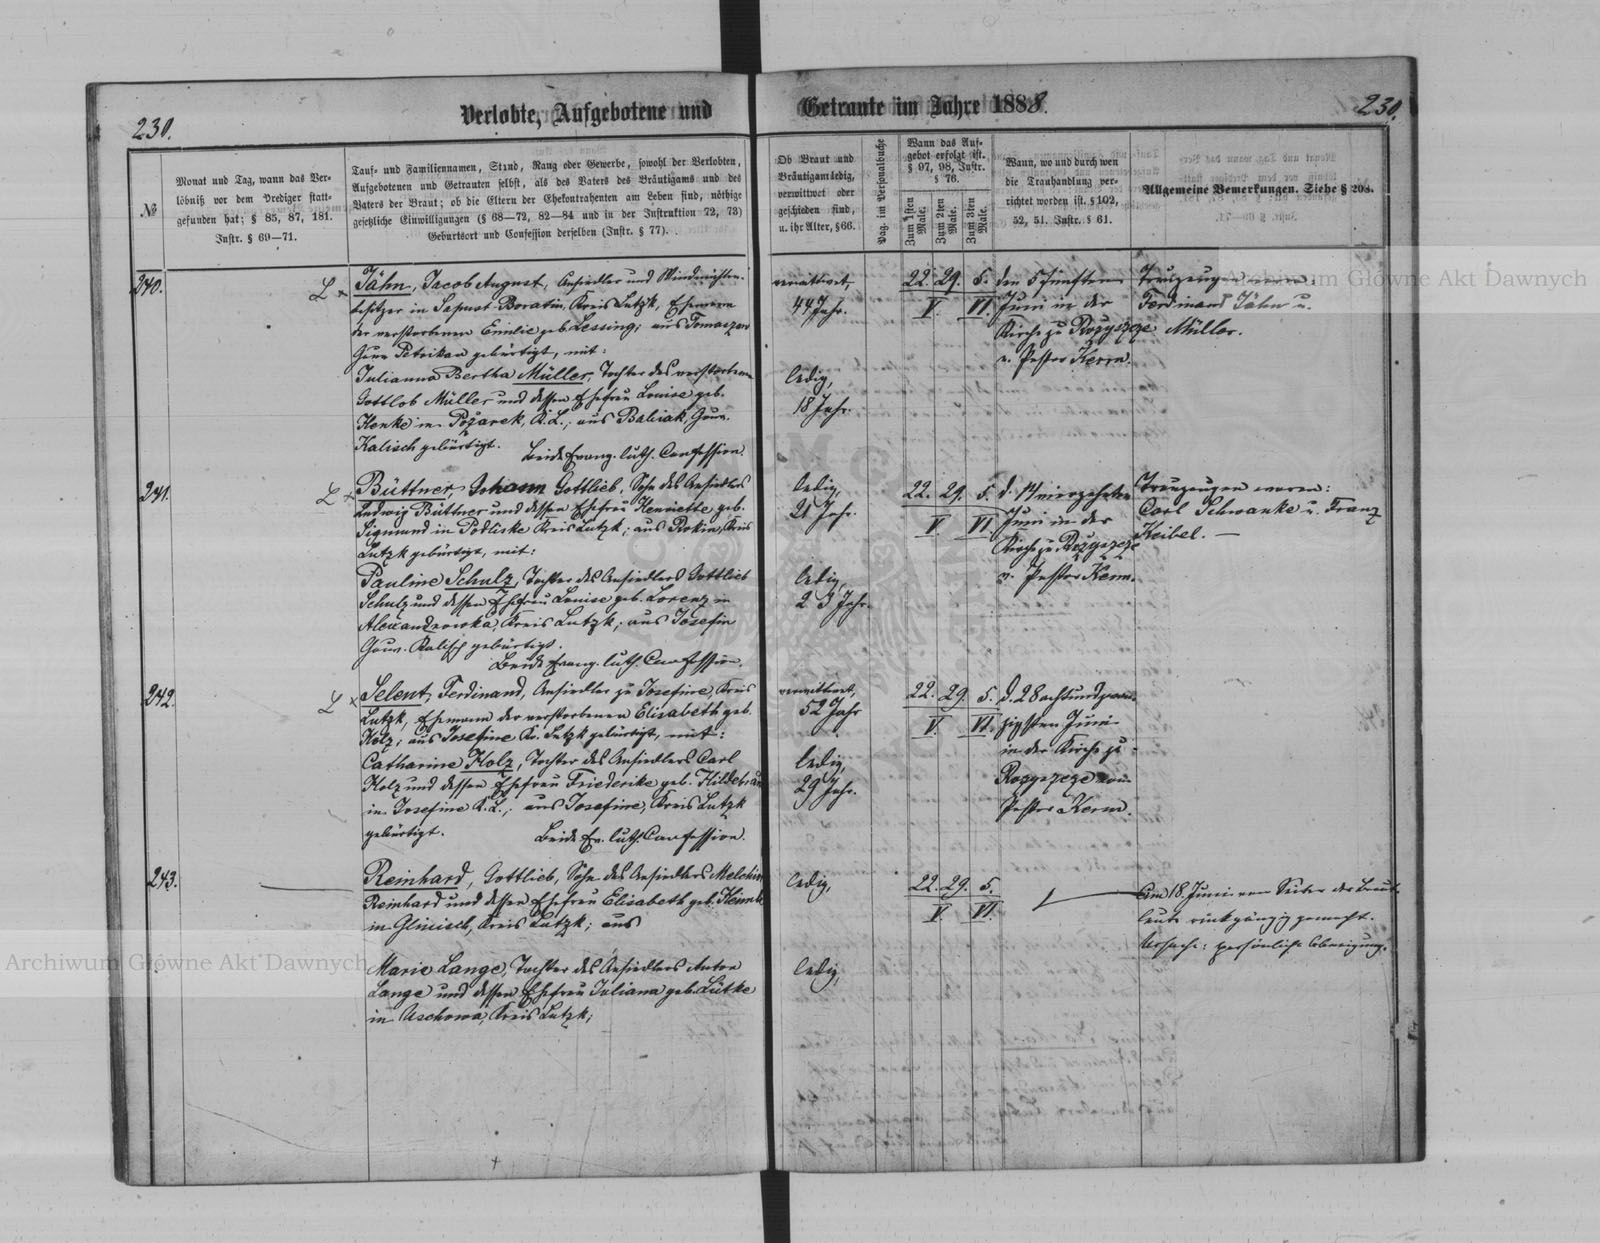 230.
Verlobte, Aufgebotene und
Getraute im Jahre 1888.
230.
№
Monat und Tag, wann das Ver-
löbniß vor dem Prediger statt-
gefunden hat; § 85, 87, 181.
Instr. § 69—71.
Tauf- und Familiennamen, Stand, Rang oder Gewerbe, sowohl der Verlobten,
Aufgebotenen und Getrauten selbst, als des Vaters des Bräutigams und des
Vaters der Braut; ob die Eltern der Ehekontrahenten am Leben sind, nöthige
gesetzliche Einwilligungen (§ 68—72, 82—84 und in der Instruktion 72, 73)
Geburtsort und Confession derselben (Instr. § 77).
Ob Braut und
Bräutigam ledig,
verwittwet oder
geschieden sind,
u. ihr Alter, § 66.
Pag. im Personalbuche
Wann das Auf-
gebot erfolgt ist.
§ 97, 98, Instr.
§ 76.
Zum 1sten Male.
Zum 2ten Male.
Zum 3ten Male.
Wann, wo und durch wen
die Trauhandlung ver-
richtet worden ist. § 102,
52, 51. Instr. § 61.
Allgemeine Bemerkungen. Siehe § 208.
240.
L ×
Jähn, Jacob August, Ansiedler und Windmühlen-
besitzer in Sapust Boratin, Kreis Lutzk, Ehemann
der verstorbenen Emilie geb. Lessing; aus Tomaszow
Gouv. Petrikau gebürtigt, mit:
Julianna Bertha Müller, Tochter des verstorbenen
Gottlob Müller und dessen Ehefrau Louise geb.
Henke in Požarek, K. L.; aus Babiak, Gouv.
Kalisch gebürtigt.
Beide Evang. luth. Confession.
verwittwet,
44 Jahr.
ledig,
18 Jahr.
22. 29. 5.
V. VI.
den 5 fünften
Juni in der
Kirche zu Rozyszcze
v. Pastor Kerm.
Trauzeugen waren:
Ferdinand Jähn u.
Müller.
241.
L ×
Büttner, Johann Gottlieb, Sohn des Ansiedlers
Ludwig Büttner und dessen Ehefrau Henriette geb.
Sigmund in Podliske Kreis Lutzk; aus Rokin, Kreis
Lutzk gebürtigt, mit:
Pauline Schulz, Tochter des Ansiedlers Gottlieb
Schulz und dessen Ehefrau Louise geb. Lorenz in
Alexandrowka, Kreis Lutzk; aus Josefin
Gouv. Kalisch gebürtigt.
Beide Evang. luth. Confession.
ledig,
21 Jahr.
ledig,
23 Jahr.
22. 29. 5.
V. VI.
d. 14 vierzehnten
Juni in der
Kirche zu Rozyszcze
v. Pastor Kerm.
Trauzeugen waren:
Carl Schwanke u. Franz
Keibel. —
242.
L ×
Selent, Ferdinand, Ansiedler zu Josefine, Kreis
Lutzk, Ehemann der verstorbenen Elisabeth geb.
Holz; aus Josefine Kr. Lutzk gebürtigt, mit:
Catharine Holz, Tochter des Ansiedlers Carl
Holz und dessen Ehefrau Friederike geb. Hildebran
in Josefine K. L.; aus Josefine, Kreis Lutzk
gebürtigt.
Beide Ev. luth. Confession.
verwittwet,
52 Jahr
ledig,
29 Jahr.
22. 29. 5.
V. VI.
d. 28 achtundzwan-
zigsten Juni
in der Kirche zu
Rozyszcze vom
Pastor Kerm.
243.
Reinhard, Gottlieb, Sohn des Ansiedlers Melchior
Reinhard und dessen Ehefrau Elisabeth geb.
in Kreis Lutzk; aus
Marie Lange, Tochter des Ansiedlers Anton
Lange und dessen Ehefrau Juliana geb. Lütke
in Uschowa, Kreis Lutzk;
ledig,
ledig,
22. 29. 5.
V. VI.
Am 18. Juni von Seiten der Braut-
leute rückgängig gemacht.
Ursache: persönliche Abneigung.
Archiwum Główne Akt Dawnych
Archiwum Główne Akt Dawnych